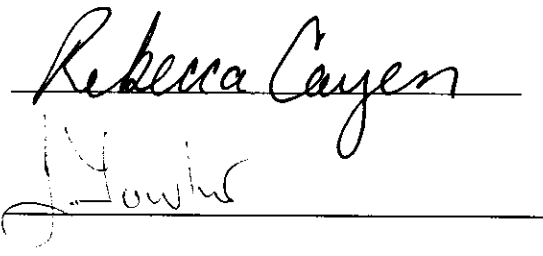 Rebecca Cayen
J. Fowler